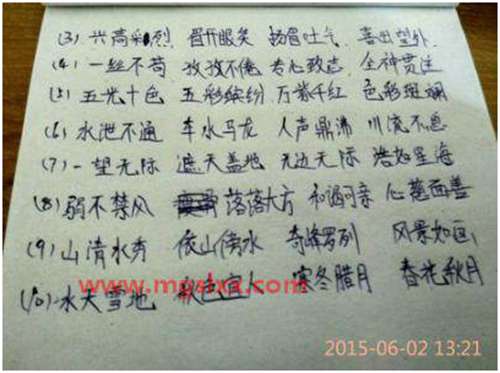 (3) 兴高彩烈 眉开眼笑 扬眉吐气 喜出望外
(4) 一丝不苟 孜孜不倦 专心致志 全神贯注
(5) 五光十色 五彩缤纷 万紫千红 色彩斑斓
(6) 水泄不通 车水马龙 人声鼎沸 川流不息
(7) 一望无际 遮天盖地 无边无际 浩如星海
(8) 弱不禁风 落落大方 和谒可亲 心慈面善
(9) 山清水秀 依山傍水 奇峰罗列 风景如画
(10) 水天雪地 秋色宜人 寒冬腊月 春花秋月
2015-06-02 13:21